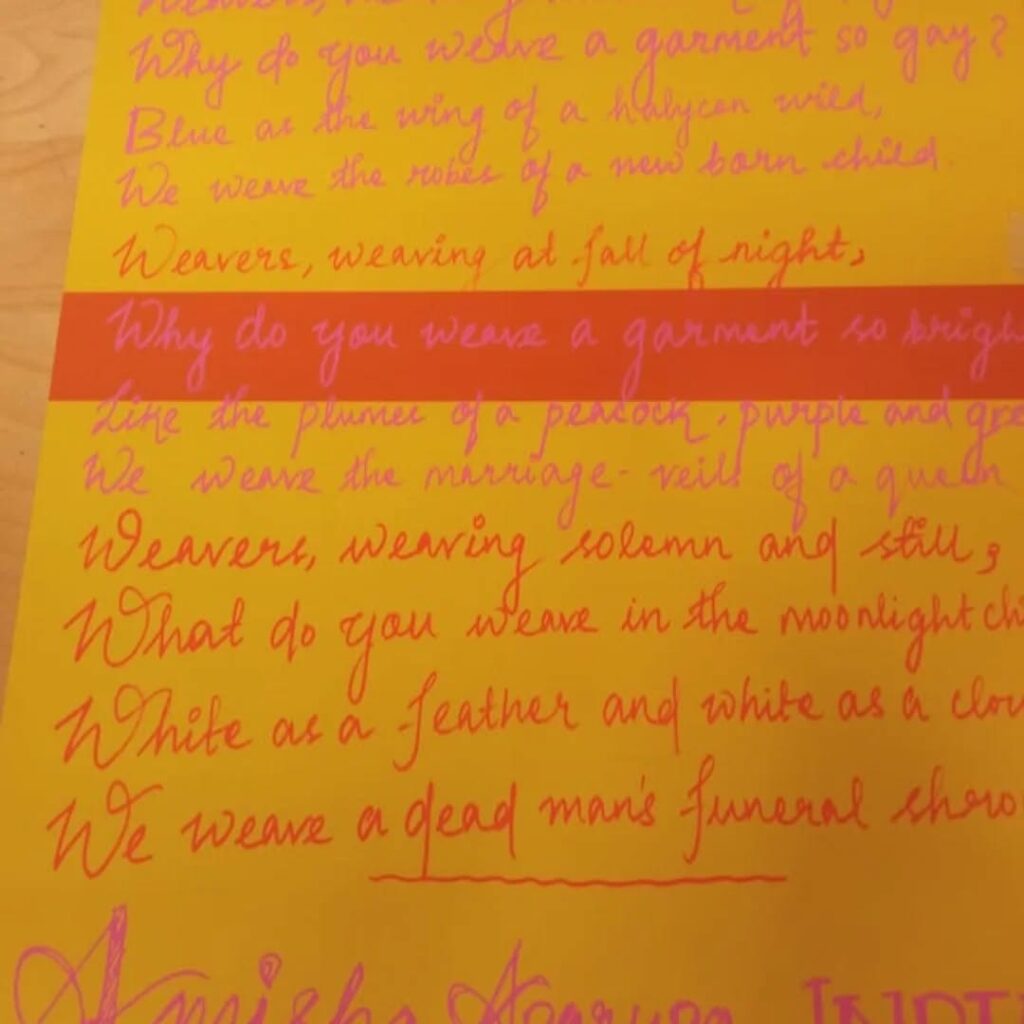 Weavers,
Why do you weave a garment so gay?
Blue as the wing of a halycon wild,
We weave the robes of a new born child.
Weavers, weaving at fall of night,
Why do you weave a garment so brigh
Like the plumes of a peacock, purple and gre
We weave the marriage-veils of a queen
Weavers, weaving solemn and still,
What do you weave in the moonlight chi
White as a feather and white as a clou
We weave a dead man's funeral shro
Amisha INDI